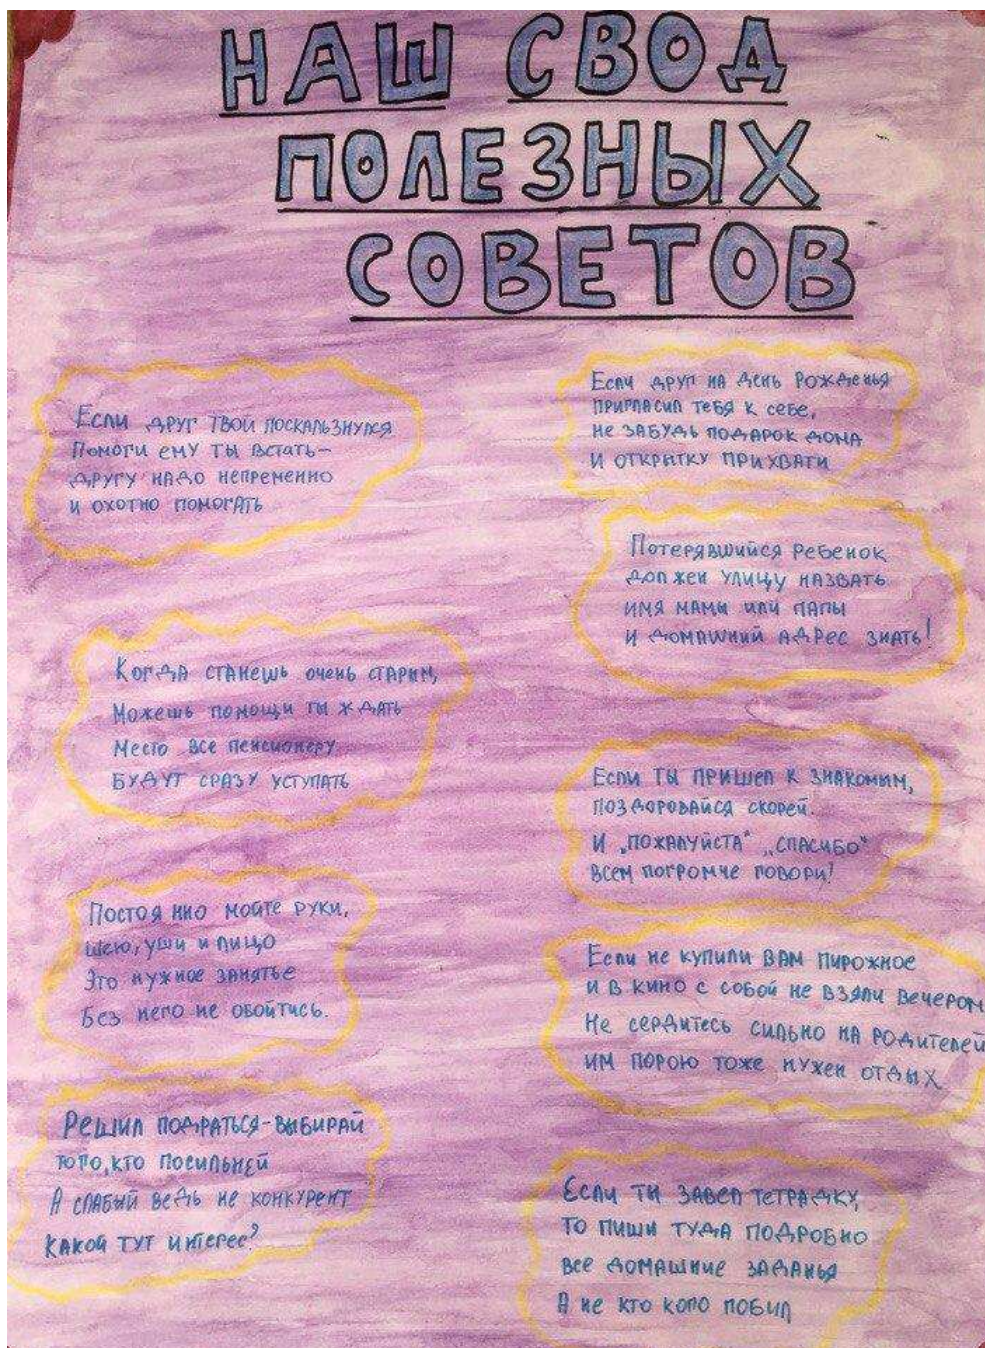 НАШ СВОД
ПОЛЕЗНЫХ
СОВЕТОВ
Если друг твой поскальзнулся
Помоги ему ты встать–
другу надо непременно
и охотно помогать
Когда станешь очень старым,
Можешь помощи ты ждать
Место все пенсионеру
Будут сразу уступать
Постоянно мойте руки,
шею, уши и лицо
Это нужное занятье
Без него не обойтись.
Решил подраться-выбирай
того, кто посильней
А слабый ведь не конкурент
Какой тут интерес?
Если друг на день рожденья
пригласил тебя к себе,
не забудь подарок дома
и открытку прихвати
Потерявшийся ребенок
должен улицу назвать
имя мамы или папы
и домашний адрес знать!
Если ты пришел к знакомым,
поздоровайся скорей.
И „пожалуйста" „спасибо"
всем погромче говори!
Если не купили вам пирожное
и в кино с собой не взяли вечером
Не сердитесь сильно на родителей
им порою тоже нужен отдых
Если ты завел тетрадку,
то пиши туда подробно
все домашние заданья
А не кто кого побил